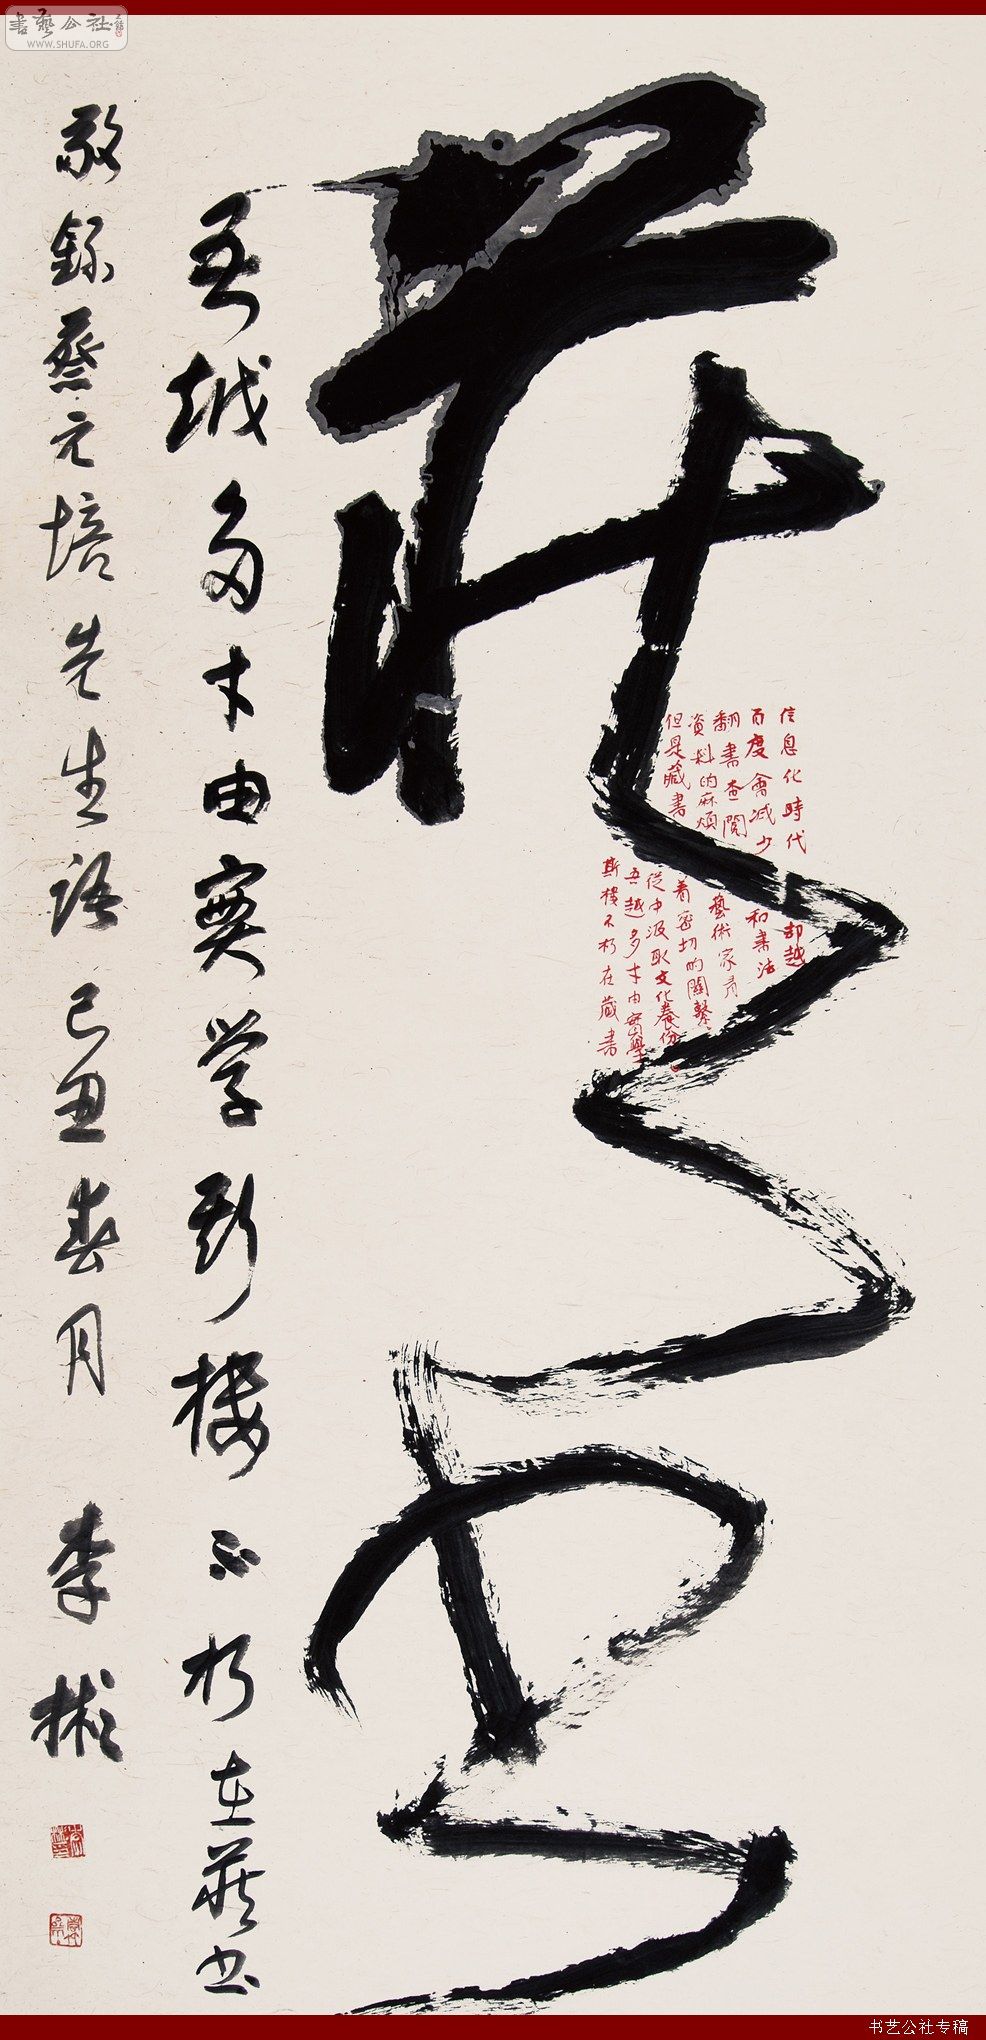 書藝公社
WWW.SHUFA.ORG
藏書
信息化時代
百度會减少
翻書查閱
資料的麻煩
但是藏書
却越
和書法
藝術家有
着密切的關繫
從中汲取文化養份
吾越多才由實學
斯樓不朽在藏書
吾越多才由實学斯楼不朽在藏书
敬録蔡元培先生語己丑春月 李
书艺公社专稿